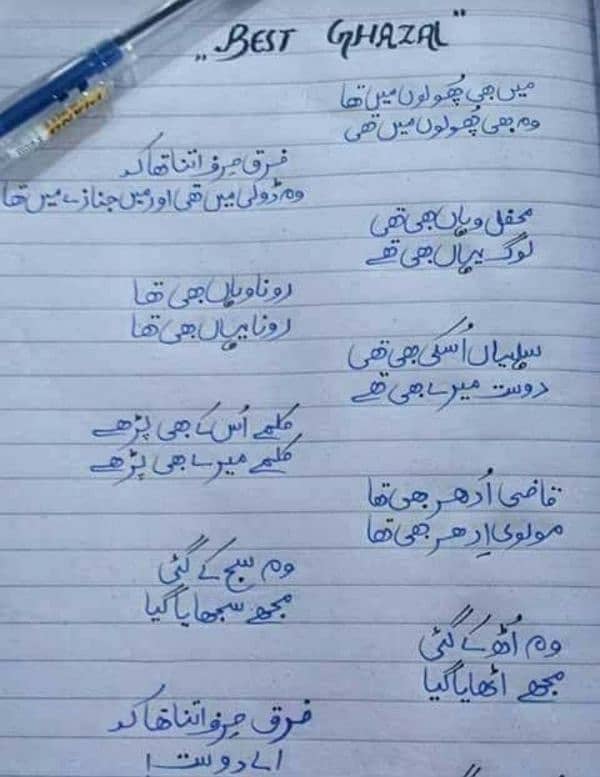 "BEST GHAZAL"
میں بھی پُھولوں میں تھا
وہ بھی پُھولوں میں تھی
فرق صِرف اتنا تھا کہ
وہ ڈولی میں تھی اور میں جنازے میں تھا
محفل وہاں بھی تھی
لوگ یہاں بھی تھے
رونا وہاں بھی تھا
رونا یہاں بھی تھا
سہلیاں اُسکی بھی تھی
دوست میرے بھی تھے
کلمے اُس کے بھی پڑھے
کلمے میرے بھی پڑھے
قاضی اُدھر بھی تھا
مولوی اِدھر بھی تھا
وہ سج کے گئی
مجھے سجھایا گیا
وہ اُٹھ کے گئی
مجھے اٹھایا گیا
فرق صِرف اتنا تھا کہ
اے دوست!